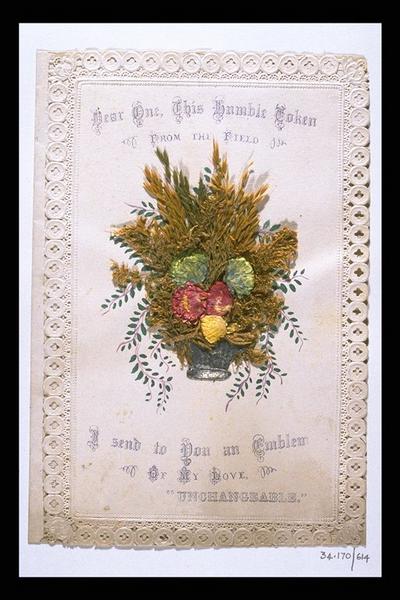 Dear One, This Humble Token
FROM THE FIELD
I send to You an Emblem
OF MY LOVE,
"UNCHANGEABLE."
34.170/614